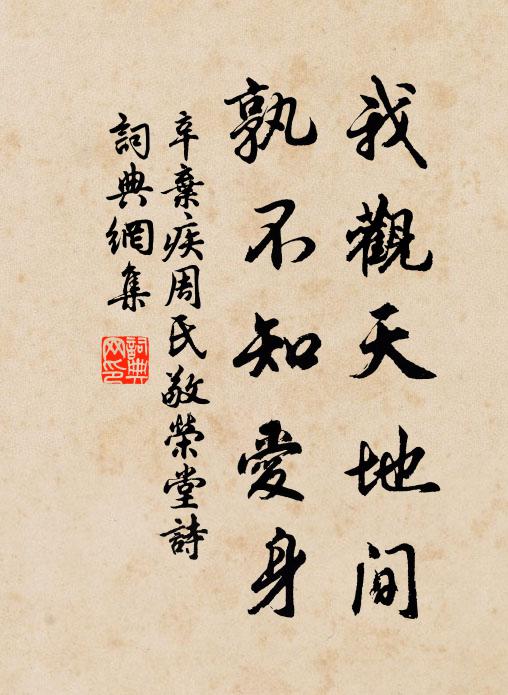 我觀天地间
孰不知愛身
辛棄疾周氏敬榮堂詩
詞典網集
詞典網印